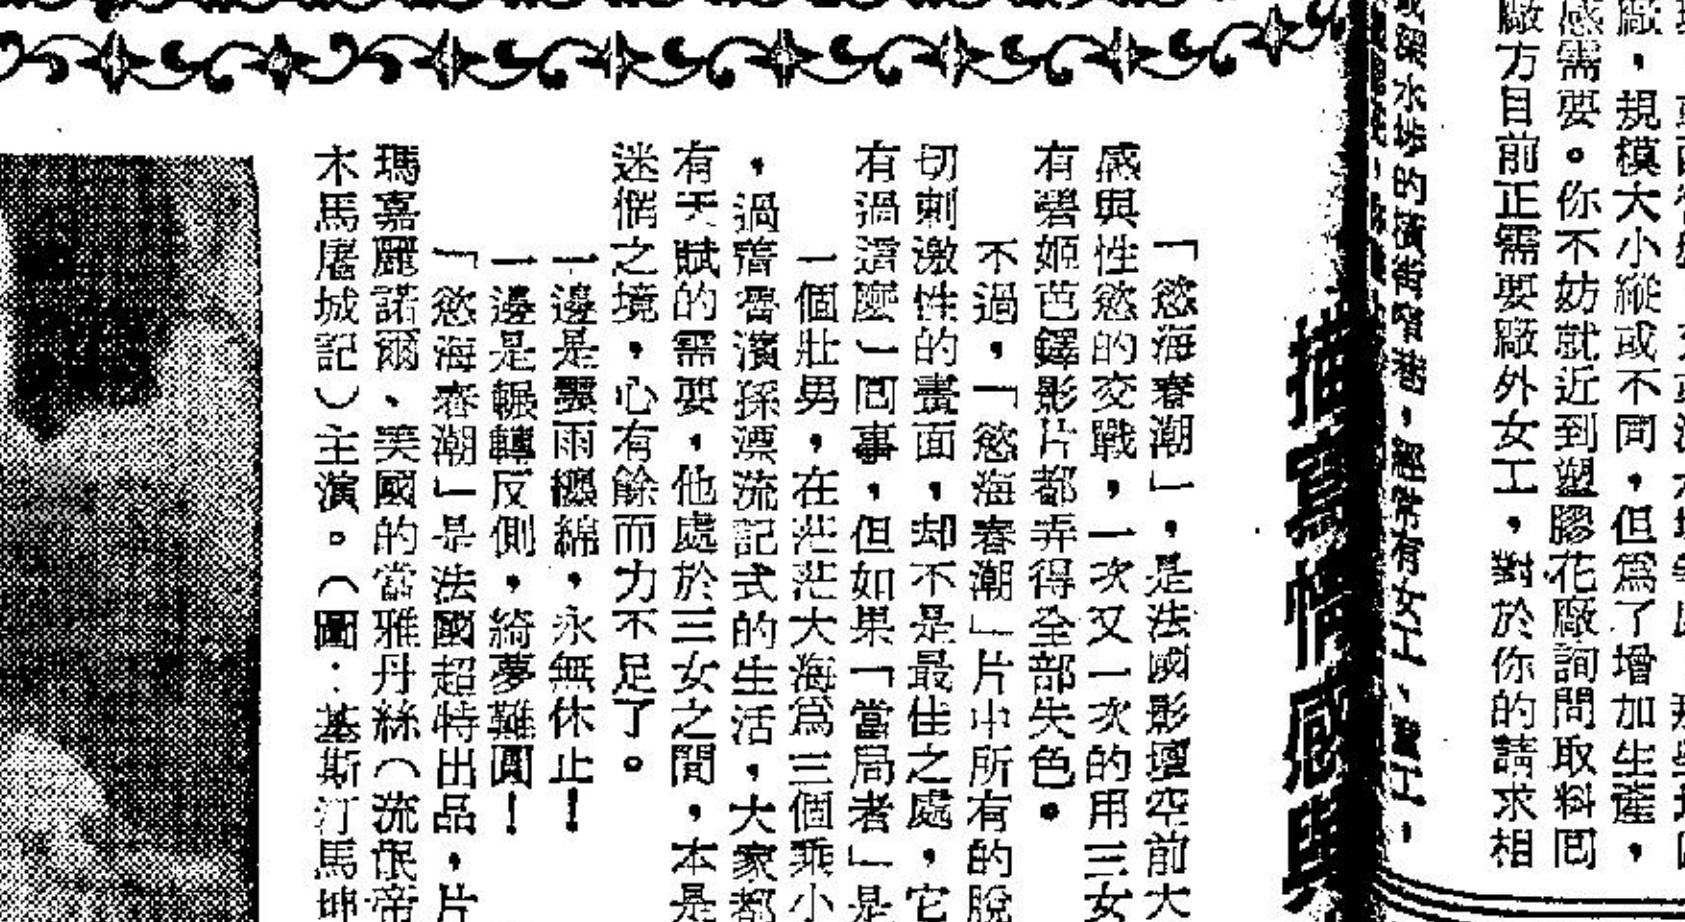 廠，規模大小縱或不同，但爲了增加生產，
感需要。你不妨就近到塑膠花廠詢問取料問
廠方目前正需要廠外女工，對於你的請求相
水埗的橫街窄巷，經常有女工、童工，
描寫情感與
「慾海春潮」，是法國影壇空前大
感與性慾的交戰，一次又一次的用三女
有碧姬芭鐸影片都弄得全部失色。
不過，「慾海春潮」片中所有的脫
切刺激性的畫面，却不是最佳之處，它
有過這麼一回事，但如果「當局者」是
一個壯男，在茫茫大海爲三個乘小
，過着魯濱孫漂流記式的生活，大家都
有天賦的需要，他處於三女之間，本是
迷惘之境，心有餘而力不足了。
一邊是靈雨纏綿，永無休止！
一邊是輾轉反側，綺夢難圓！
「慾海春潮」是法國超特出品，片
瑪嘉麗諾爾、美國的當雅丹絲（流氓帝
木馬屠城記）主演。（圖：基斯汀馬